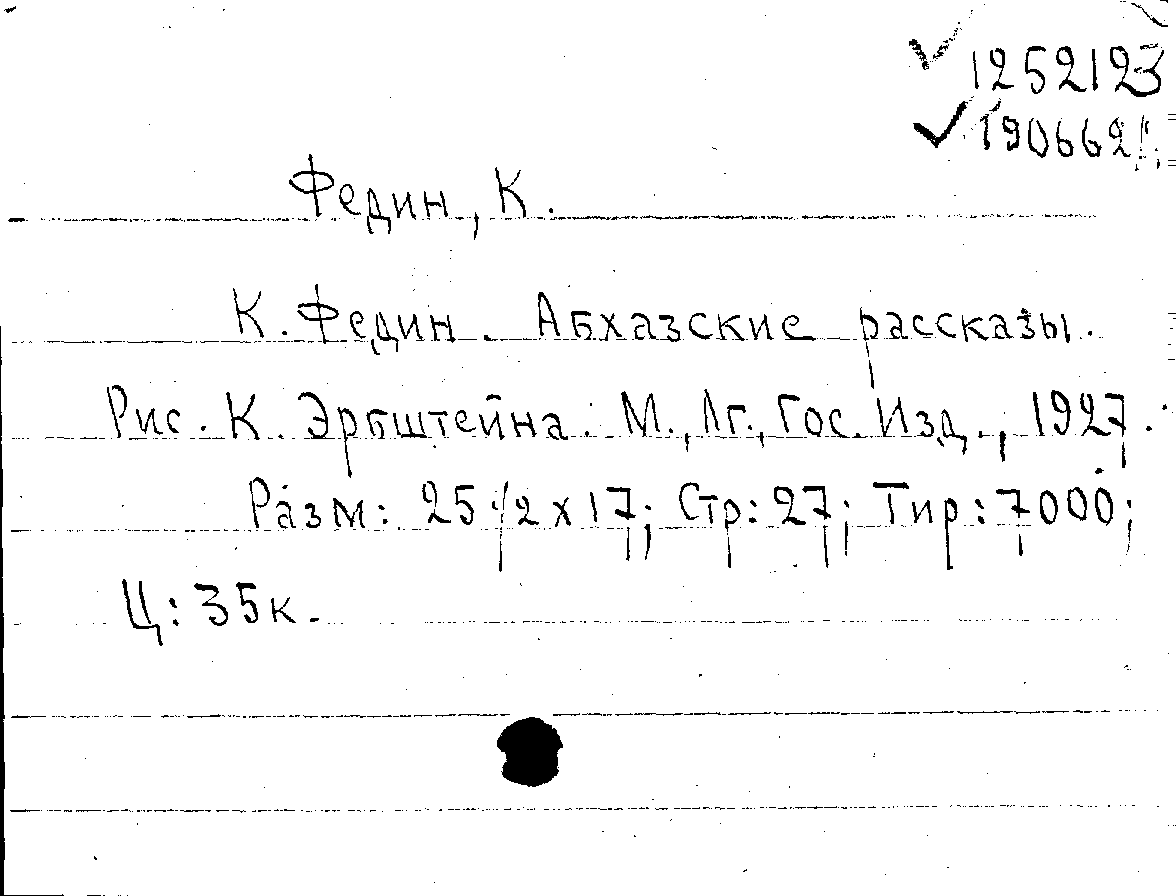 ✓ 1252123
✓
Федин, К.
К. Федин. Абхазские рассказы.
Рис. К. Эрбштейна. М., Лг., Гос. Изд., 1927.
Разм: 25 1/2 x 17; Стр: 27; Тир: 7000;
Ц: 35к.